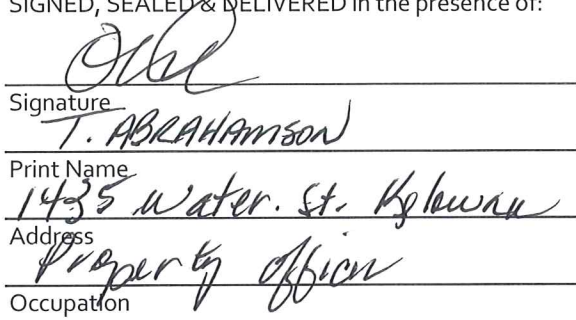 SIGNED, SEALED & DELIVERED in the presence of:
Signature
T. ABRAHAMSON
Print Name
1435 Water. St. Kelowna
Address
Property Officer
Occupation